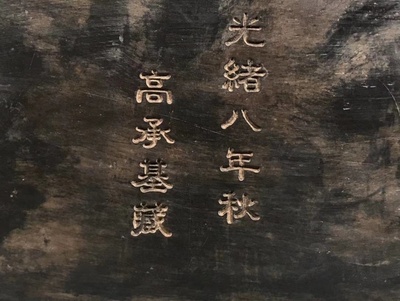 光緒八年秋
高承基藏